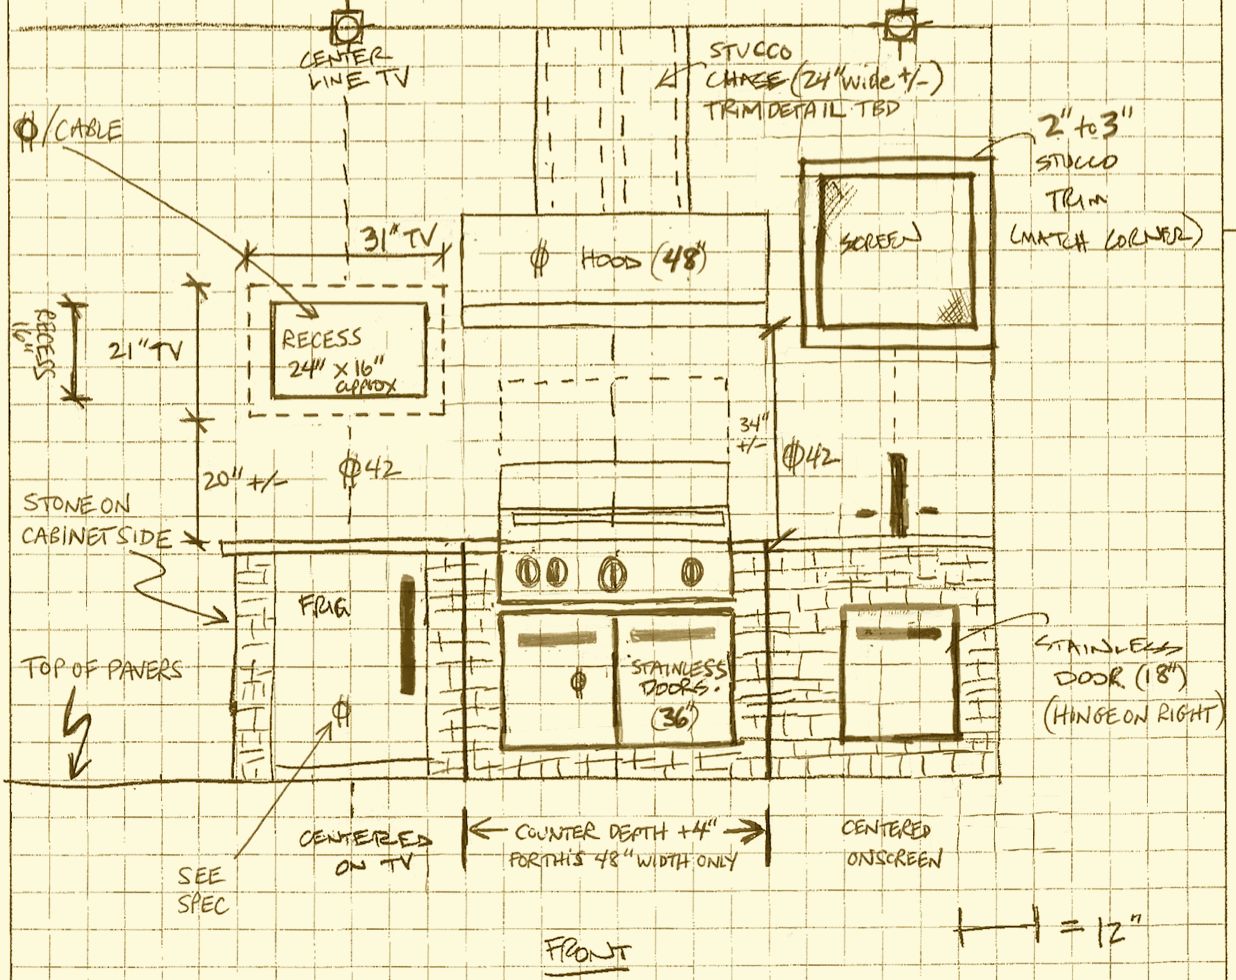 CENTER
LINE TV
STUCCO
CHASE (24" wide +/-)
TRIM DETAIL TBD
/CABLE
2" to 3"
STUCCO
TRIM
(MATCH CORNER)
31" TV
HOOD (48")
SCREEN
RECESS
16"
21" TV
RECESS
24" x 16"
approx
34"
+/-
42
42
20" +/-
STONE ON
CABINET SIDE
FRIG
TOP OF PAVERS
STAINLESS
DOORS.
(36")
STAINLESS
DOOR (18")
(HINGE ON RIGHT)
CENTERED
ON TV
COUNTER DEPTH +4"
FOR THIS 48" WIDTH ONLY
CENTERED
ON SCREEN
SEE
SPEC
= 12"
FRONT